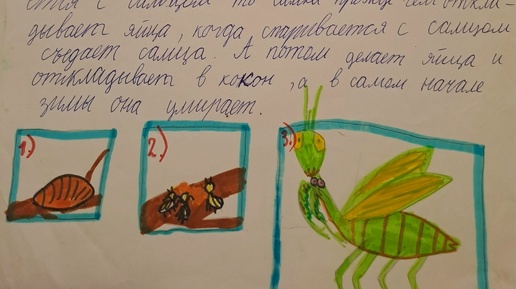 ется с самцом то самка прежде чем откла-
дывает яйца, когда спаривается с самцом
съедает самца. А потом делает яйца и
откладывает в кокон, а в самом начале
зимы она умирает.
1.)
2.)
3.)